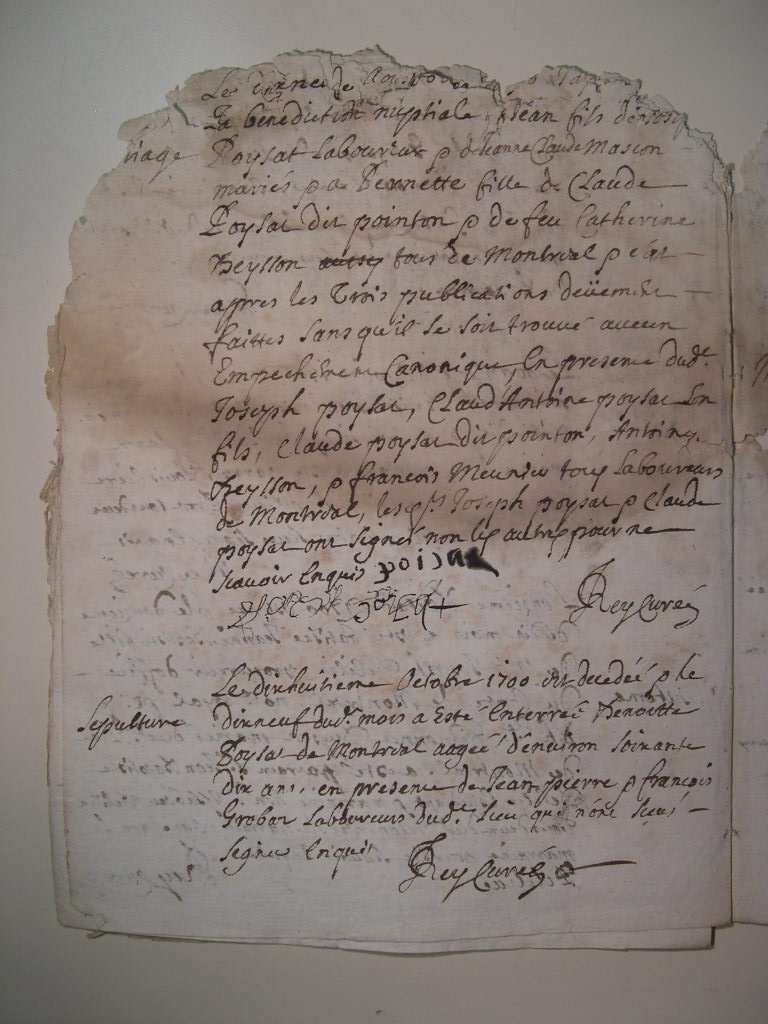 La bénédiction nuptiale Jean fils de
riage Poysat Laboureur & de Jeanne Claude Mascon
mariés & a Pernette fille de Claude
Poysat dit pointon & de feu Catherine
Heysson tous de Montreal & c'est
appres les Trois publications deüement
faittes sans qu'il se soit trouvé aucun
Empechement Canonique, En presence dudt
Joseph poysat, Claud Antoine poysat son
fils, Claude poysat dit pointon, Antoine
Heysson, & francois Meunier tous Laboureurs
de Montreal, les Joseph poysat & Claude
poysat ont signés non les autres pour ne
scavoir Enquis poisat
Rey Curé
Le dixhuitieme Octobre 1700 est decedée & le
Sepulture dixneuf dudt mois a Esté Enterrée Benoitte
Poysat de Montreal aageé d'environ soixante
dix ans, en presence de Jean pierre & francois
Grobar Laboureurs dudt Lieu qui n'ont sceus
signer Enquis
Rey Curé